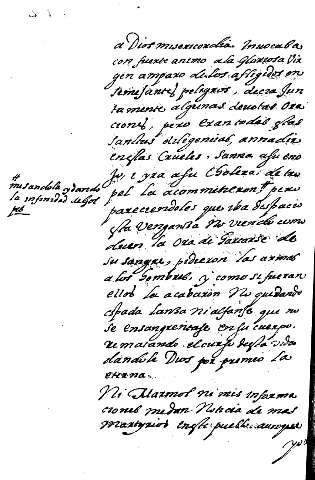 a Dios misericordia. Invocaba
con fuerte animo a la Gloriosa Vir
gen amparo de los afligidos en
semejantes peligros, decia Jun
tamente algunas devotas ora
ciones, pero eran todas estas
santas diligencias, annadir
en las Crueles, Sanna a su eno
jo, e yra a su Cholera: de tro
pel la acommetieron # pero
pareciendoles que iba despacio
esta Venganza No viendo
la Ora de hartarse de
su sangre, pidieron las armas
a los hombres, y como si fueran
ellos la acabaron No quedando
espada lanza ni alfanje que no
se ensangrentase en su cuerpo.
rematando el curso desta vida
dandole Dios por premio la
eterna.
Ni Marmol ni mis informa
ciones me dan Noticia de mas
Martyrios en este pueblo aunque
#
misandola y dando
la infinidad de gol
pes